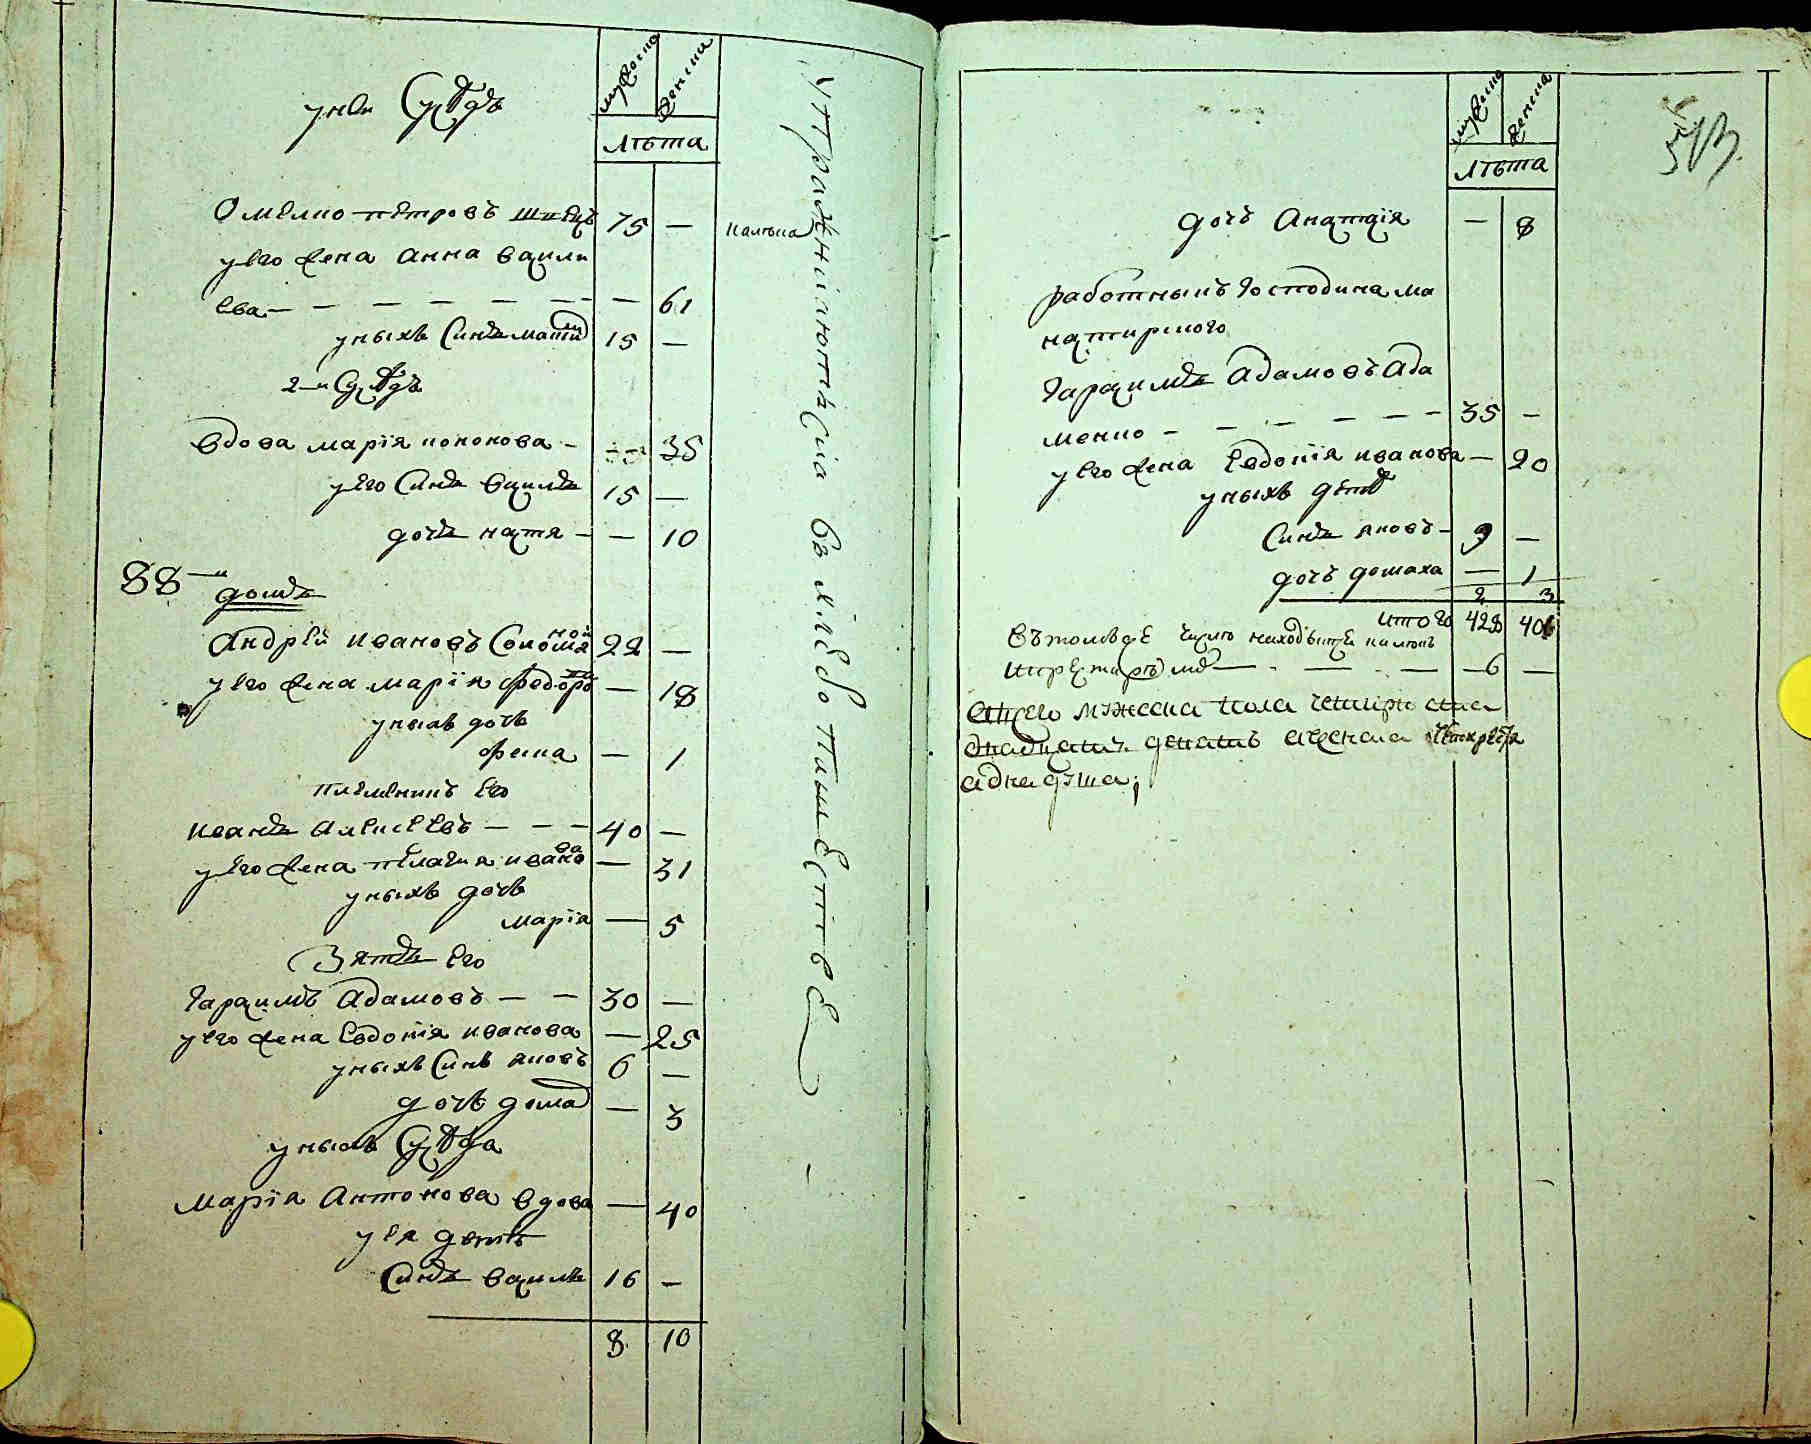 мужска
женска
лѣта
Омелко петровъ швецъ 75 — калѣка
у его жена анна васили
ева — — — — — — — 61
у ныхъ Синъ 15 —
2-и Сусѣдъ
вдова марія кононова — 35
у его Синъ василь 15 —
дочь катя — — 10
88-и домъ
Андрѣй ивановъ 22 —
у его жена марія федоро — 18
у ныхъ дочь
— 1
племеникъ его
иванъ алексѣевъ — — — 40 —
у его жена пелагия ивано ва — 31
у ныхъ дочь
марія — 5
Зять его
Гарасимъ Адамовъ — — 30 —
у его жена Евдокія иванова — 25
у ныхъ Синъ яковъ 6 —
дочь дома — 3
у ныхъ Сусѣда
Марія Антонова вдова — 40
у ея дети
Синъ василь 16 —
8 10
упражніяются въ хлебопашестве —
мужска
женска
лѣта
дочь Анастасія — 8
работникъ Господина ма
настирского
Гарасимъ Адамовъ Ада
менко — — — — — — 35 —
у его жена Евдокія иванова — 20
у ныхъ дѣти
Синъ яковъ — 9 —
дочь домаха — 1
2 3
итого 428 406
въ томъ числе находытся калекъ
— — — 6 —
мужеска пола четири ста
дватцать а женска четиреста
адна душа;